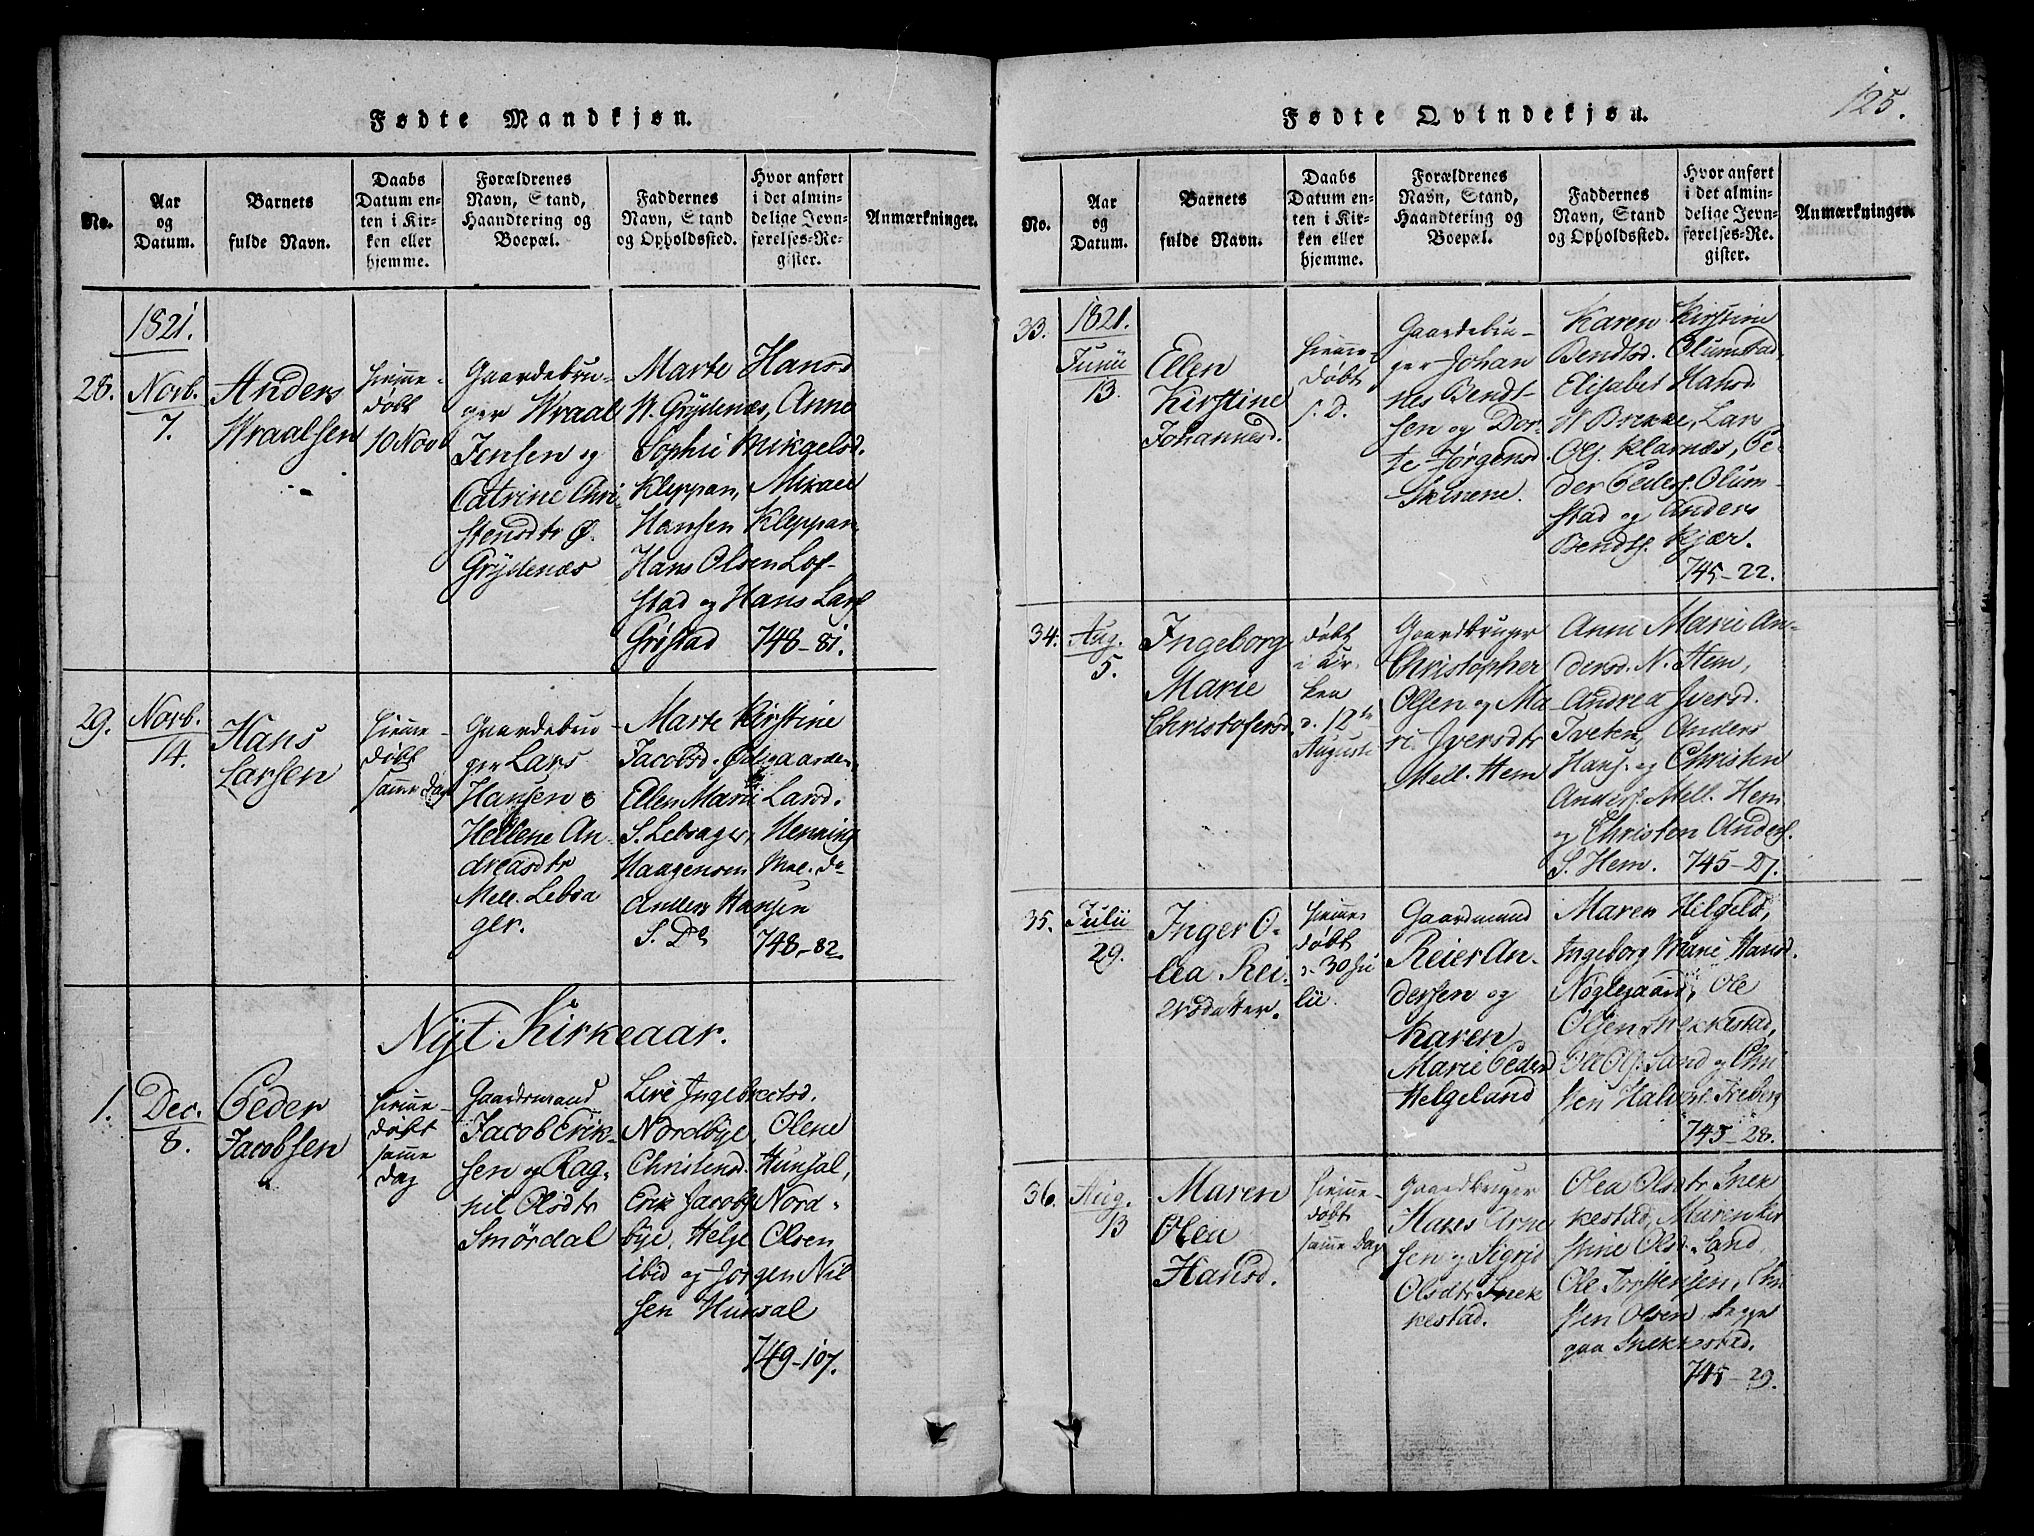 125.
Fødte Mandkjøn.
No.
Aar
og
Datum.
Barnets
fulde Navn.
Daabs
Datum en-
ten i Kir-
ken eller
hjemme.
Forældrenes
Navn, Stand,
Haandtering og
Boepæl.
Faddernes
Navn, Stand
og Opholdssted.
Hvor anført
i det almin-
delige Jevn-
førelses-Re-
gister.
Anmærkninger.
1821.
28.
Novb.
7.
Anders
Wraalsen
hjemme-
døbt
10 Nov
Gaardebru-
ger Wraal
Jensen og
Catrine Chri-
stensdtr Ø.
Grydenæs
Marte Hansd
N. Grydenæs, Anne
Sophie Mikgelsd.
Kleppan, Mikael
Hansen Kleppan
Hans Olsen Lof-
stad og Hans Lars
Grøstad 748-81.
29.
Novb.
14.
Hans
Larsen
hjemme-
døbt
samme Dag
Gaardebru-
ger Lars
Hansen &
Hellene An-
dreasdtr
Mell. Lebsa
ger.
Marte Kirstine
Jacobsd. Ødegaarden
Ellen Marie Larsd.
S. Lebsager, Henning
Haagensen
Anders Hansen
S. Do
748-82
Nyt Kirkeaar.
1.
Dec.
8.
Peder
Jacobsen
hjemme-
døbt
samme
Dag
Gaardmand
Jacob Erik-
sen og Rag-
nil Olsdtr
Smørdal
Live Ingebretsd.
Nordbye, Olene
Christensd. Hunsal,
Erik Jacobs Nord-
bye, Helge Olsen
ibid og Jørgen Nil
sen Hunsal
749-107.
Fødte Qvindekjøn.
No.
Aar
og
Datum.
Barnets
fulde Navn.
Daabs
Datum en-
ten i Kir-
ken eller
hjemme.
Forældrenes
Navn, Stand,
Haandtering og
Boepæl.
Faddernes
Navn, Stand
og Opholdssted.
Hvor anført
i det almin-
delige Jevn-
førelses-Re-
gister.
Anmærkninger.
33.
1821.
Junii
13.
Ellen
Kirstine
Johannesd.
hjemme-
døbt
s. D.
Gaardebru-
ger Johan
nes Bendt-
sen og Dor-
te Jørgensd
Skinene.
Karen Kirstine
Bendtsd. Olumstad,
Elisabet Hansd.
N Brekke, Lars
Ols. Klarnæs, Pe-
der Peders. Olum-
stad og Anders
Bendts. Kjær.
745-22.
34.
Aug.
5.
Ingeborg
Marie
Christofersd.
døbt
i Kir-
ken
d. 12te
Augusti
Gaardbruger
Christopher
Olsen og Ma
ri Iversdtr
Mell. Hem
Anne Marie An-
dersd. N. Hem,
Andrea Iversd.
Tveten, Anders
Hans. og Christen
Anders. Mell. Hem
og Christen Anders.
S. Hem. 745-27.
35.
Julii
29.
Inger O-
lea Rei-
ersdatter.
hjemme
døbt
d. 30 Ju
lii.
Gaardmand
Reier An-
dersen og
Karen
Marie Peders
Helgeland
Maren Helgeld,
Ingeborg Marie Hansd.
Nøglegaard, Ole
Olsen Snekkestad,
Ole Ols. Sand og Chri
sten Halvors. Freberg
745-28.
36.
Aug.
13
Maren
Olea
Hansd.
hjemme-
døbt
samme Dag
Gaardbruger
Hans Arne
sen og Sigrid
Olsdtr Snek
kestad.
Olea Olsdtr Snek
kestad, Maren Kir
stine Olsd. Sand,
Ole Torstensen, Chri
sten Olsen, begge
paa Snekkestad.
745-29.